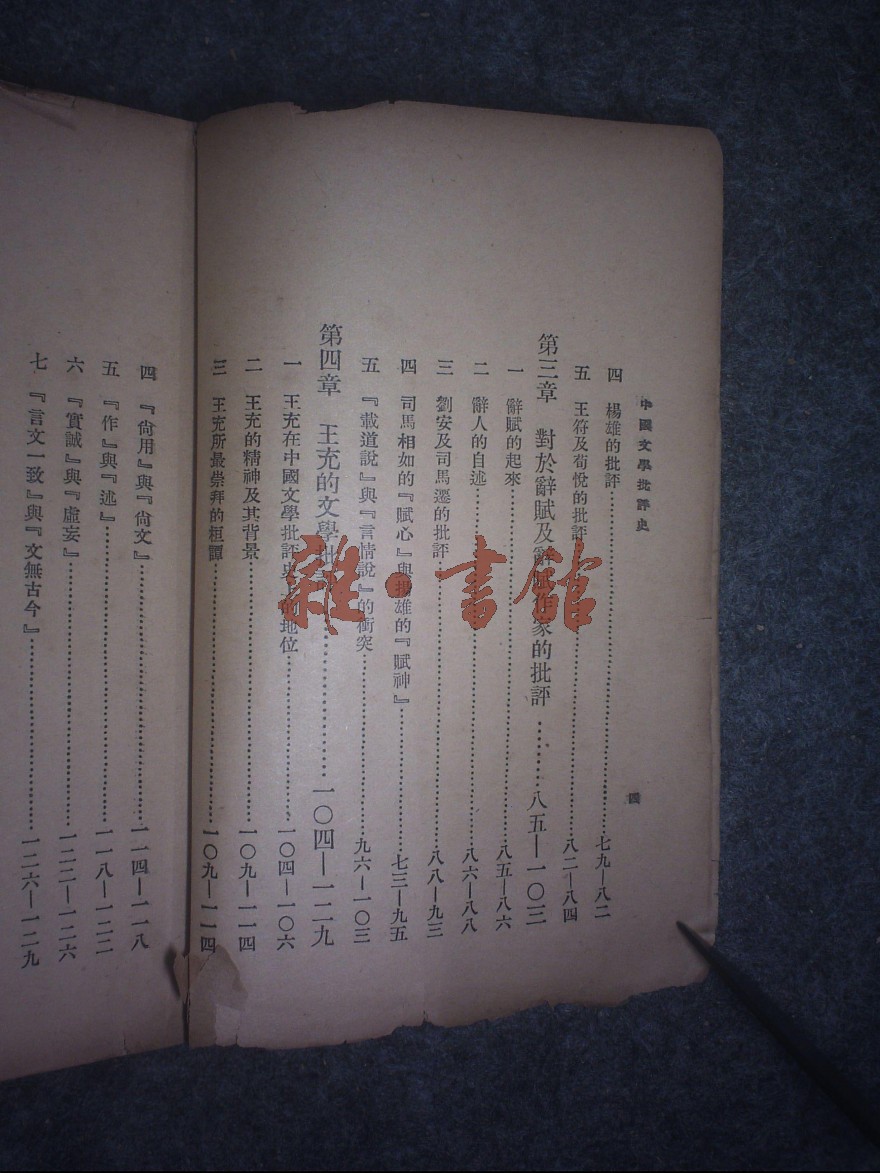 中國文學批評史
四
四 楊雄的批評……七九—八二
五 王符及荀悅的批評……八二—八四
第三章 對於辭賦及辭賦作家的批評……八五—一〇三
一 辭賦的起來……八五—八六
二 辭人的自述……八六—八八
三 劉安及司馬遷的批評……八八—九三
四 司馬相如的『賦心』與揚雄的『賦神』……七三—九五
五 『載道說』與『言情說』的衝突……九六—一〇三
第四章 王充的文學批……一〇四—一二九
一 王充在中國文學批評史上的地位……一〇四—一〇六
二 王充的精神及其背景……一〇九—一一四
三 王充所最崇拜的桓譚……一〇九—一一四
四 『尙用』與『尙文』……一一四—一一八
五 『作』與『述』……一一八—一二二
六 『實誠』與『虛妄』……一二二—一二六
七 『言文一致』與『文無古今』……一二六—一二九
雜·書館